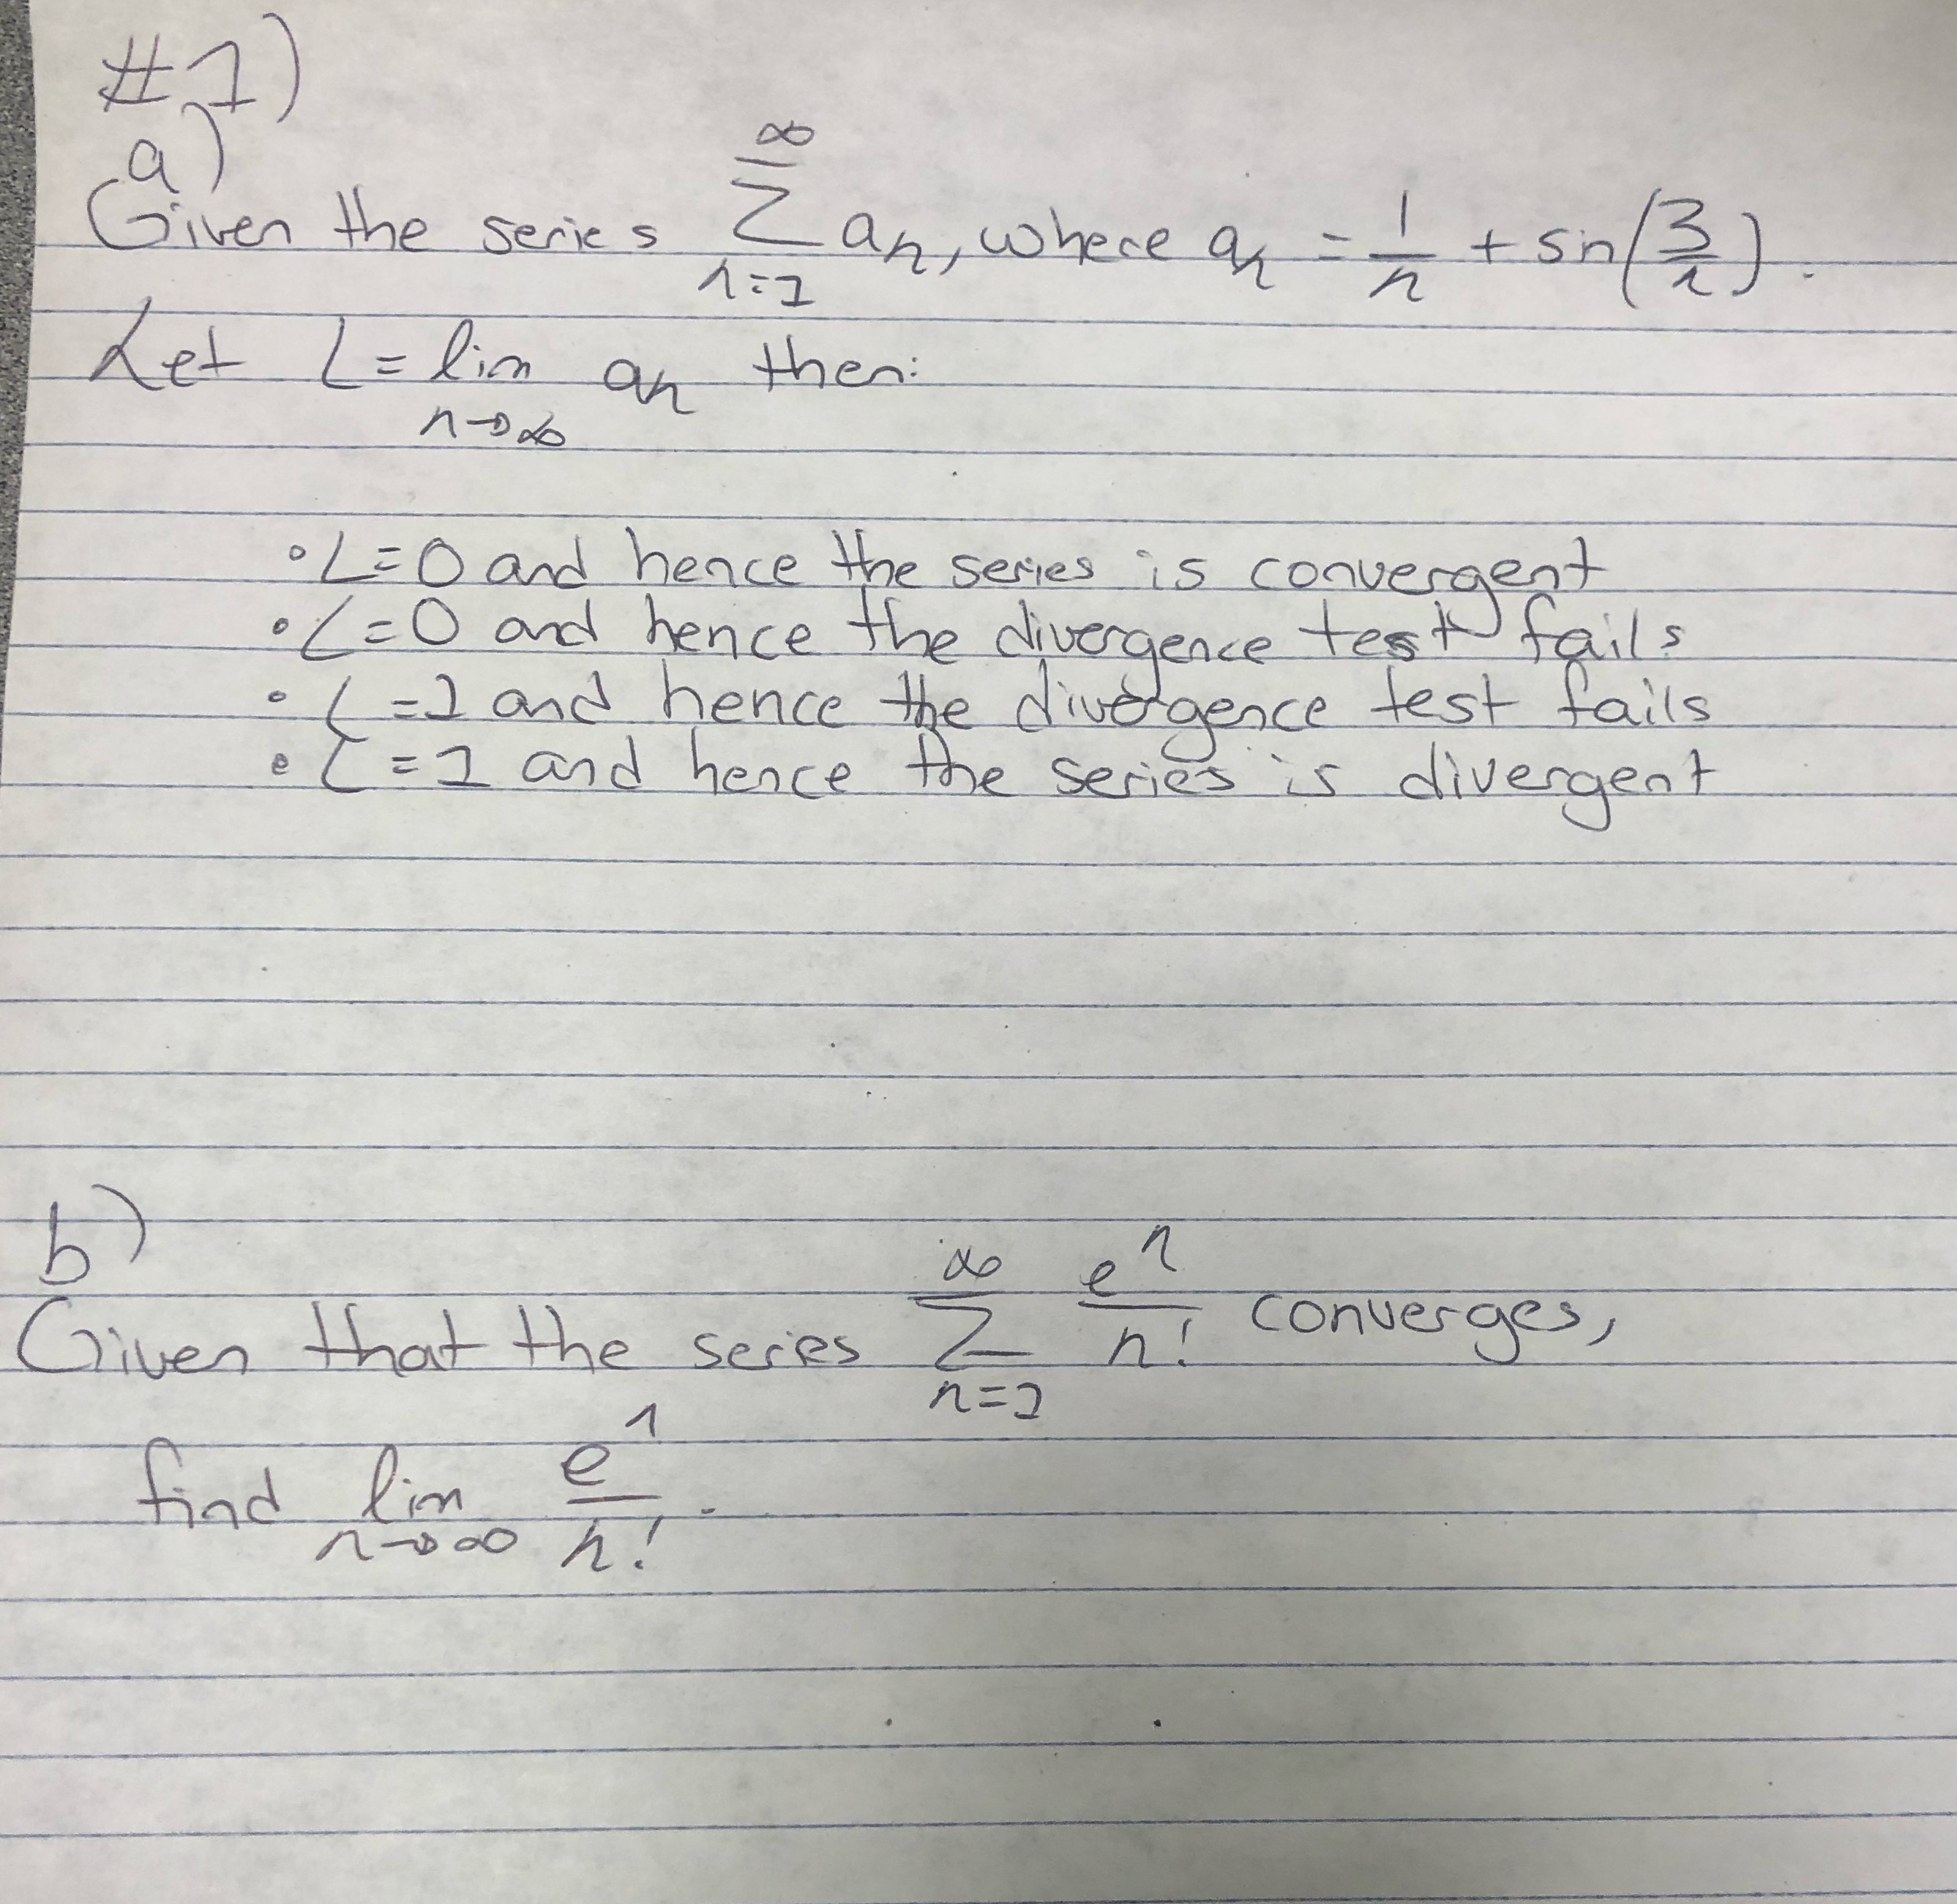 #1)
a)
Given the series ∞∑n=1 aₙ, where aₙ = 1/n + sin(3/n).
Let L = lim n→∞ aₙ then:
• L=0 and hence the series is convergent
• L=0 and hence the divergence test fails
• L=1 and hence the divergence test fails
• L=1 and hence the series is divergent
b)
Given that the series ∞∑n=1 eⁿ/n! converges,
find lim n→∞ eⁿ/n!.